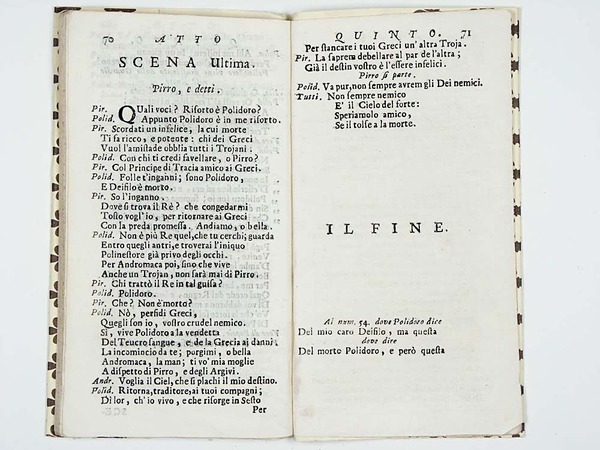 70 ATTO
SCENA Ultima.
Pirro, e detti.
Pir. Quali voci? Risorto è Polidoro?
Polid. Appunto Polidoro è in me risorto.
Pir. Scordati un infelice, la cui morte
Ti fa ricco, e potente: chi dei Greci
Vuol l'amistade obblia tutti i Trojani.
Polid. Con chi ti credi favellare, o Pirro?
Pir. Col Principe di Tracia amico ai Greci.
Polid. Folle t'inganni; sono Polidoro,
E Deifilo è morto.
Pir. So l'inganno.
Dove si trova il Rè? che congedarmi
Tosto vogl'io, per ritornare ai Greci
Con la preda promessa. Andiamo, o bella.
Polid. Non è più Re quel, che tu cerchi; guarda
Entro quegli antri, e troverai l'iniquo
Polinestore già privo degli occhi.
Per Andromaca poi, sino che vive
Anche un Trojan, non sarà mai di Pirro.
Pir. Chi trattò il Re in tal guisa?
Polid. Polidoro.
Pir. Che? Non è morto?
Polid. Nò, perfidi Greci,
Quegli son io, vostro crudel nemico.
Sì, vive Polidoro a la vendetta
Del Teucro sangue, e de la Grecia ai danni.
La incomincio da te; porgimi, o bella
Andromaca, la man; ti vo' mia moglie
A dispetto di Pirro, e degli Argivi.
Andr. Voglia il Ciel, che si plachi il mio destino.
Polid. Ritorna, traditore, ai tuoi compagni;
Di lor, ch'io vivo, e che risorge in Sesto
Per
QUINTO. 71
Per stancare i tuoi Greci un' altra Troja.
Pir. La saprem debellare al par de l'altra;
Già il destin vostro è l'essere infelici.
Pirro si parte.
Polid. Va pur, non sempre avrem gli Dei nemici.
Tutti. Non sempre nemico
E' il Cielo del forte:
Speriamolo amico,
Se il tolse a la morte.
IL FINE.
Al num. 54. dove Polidoro dice
Del mio caro Deifilo, ma questa
deve dire
Del morto Polidoro, e però questa